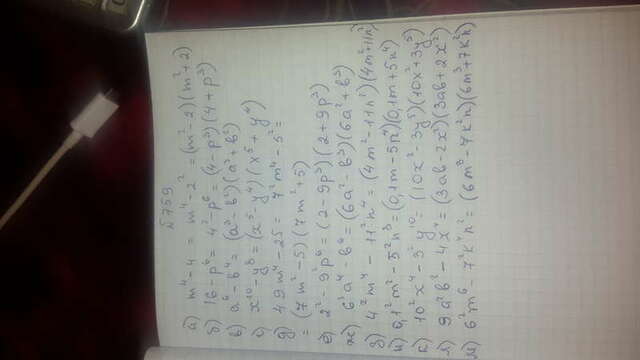 №759
а) m⁴-4 = m⁴-2² = (m²-2)(m²+2)
б) 16-p⁶ = 4²-p⁶ = (4-p³)(4+p³)
в) a⁶-b⁴ = (a³-b²)(a³+b²)
г) x¹⁰-y⁸ = (x⁵-y⁴)(x⁵+y⁴)
д) 49m⁴-25 = 7²m⁴-5² =
= (7m²-5)(7m²+5)
е) 2²-9²p⁶ = (2-9p³)(2+9p³)
ж) 6²a⁴-b⁶ = (6a²-b³)(6a²+b³)
з) 4²m⁴-11²n⁴ = (4m²-11n²)(4m²+11n²)
и) 0,1²m²-5²n⁸ = (0,1m-5n⁴)(0,1m+5n⁴)
к) 10²x⁴-3²y¹⁰ = (10x²-3y⁵)(10x²+3y⁵)
л) 9a²b²-4x⁴ = (3ab-2x²)(3ab+2x²)
м) 6²m⁶-7²k⁴n² = (6m³-7k²n)(6m³+7k²n)